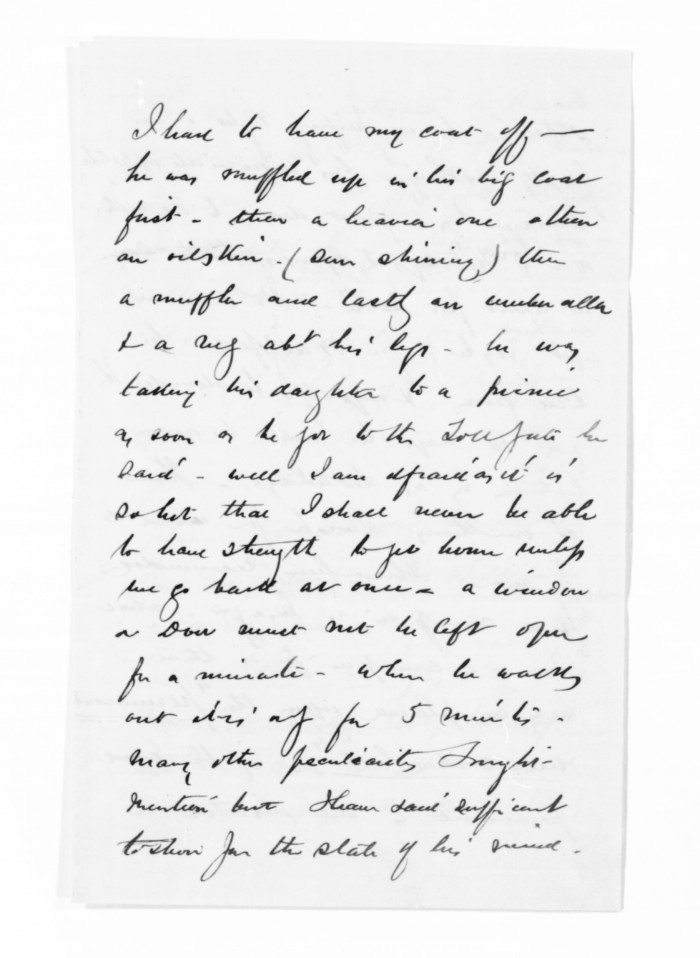 I had to have my coat off —
he was muffled up in his big coat
first - then a heavier one & then
an oilskin - (sun shining) then
a muffler and lastly an umberalla
& a rug abt his legs - he was
taking his daughter to a picnic
as soon as he got to the Toll gate he
said - well I am afraid as it is
so hot that I shall never be able
to have strength to get home unless
we go back at once - a window
or door must not be left open
for a minute - When he walks
out it is only for 5 minutes -
many other peculiarities I might -
mention but I have said sufficient
to show you the state of his mind -